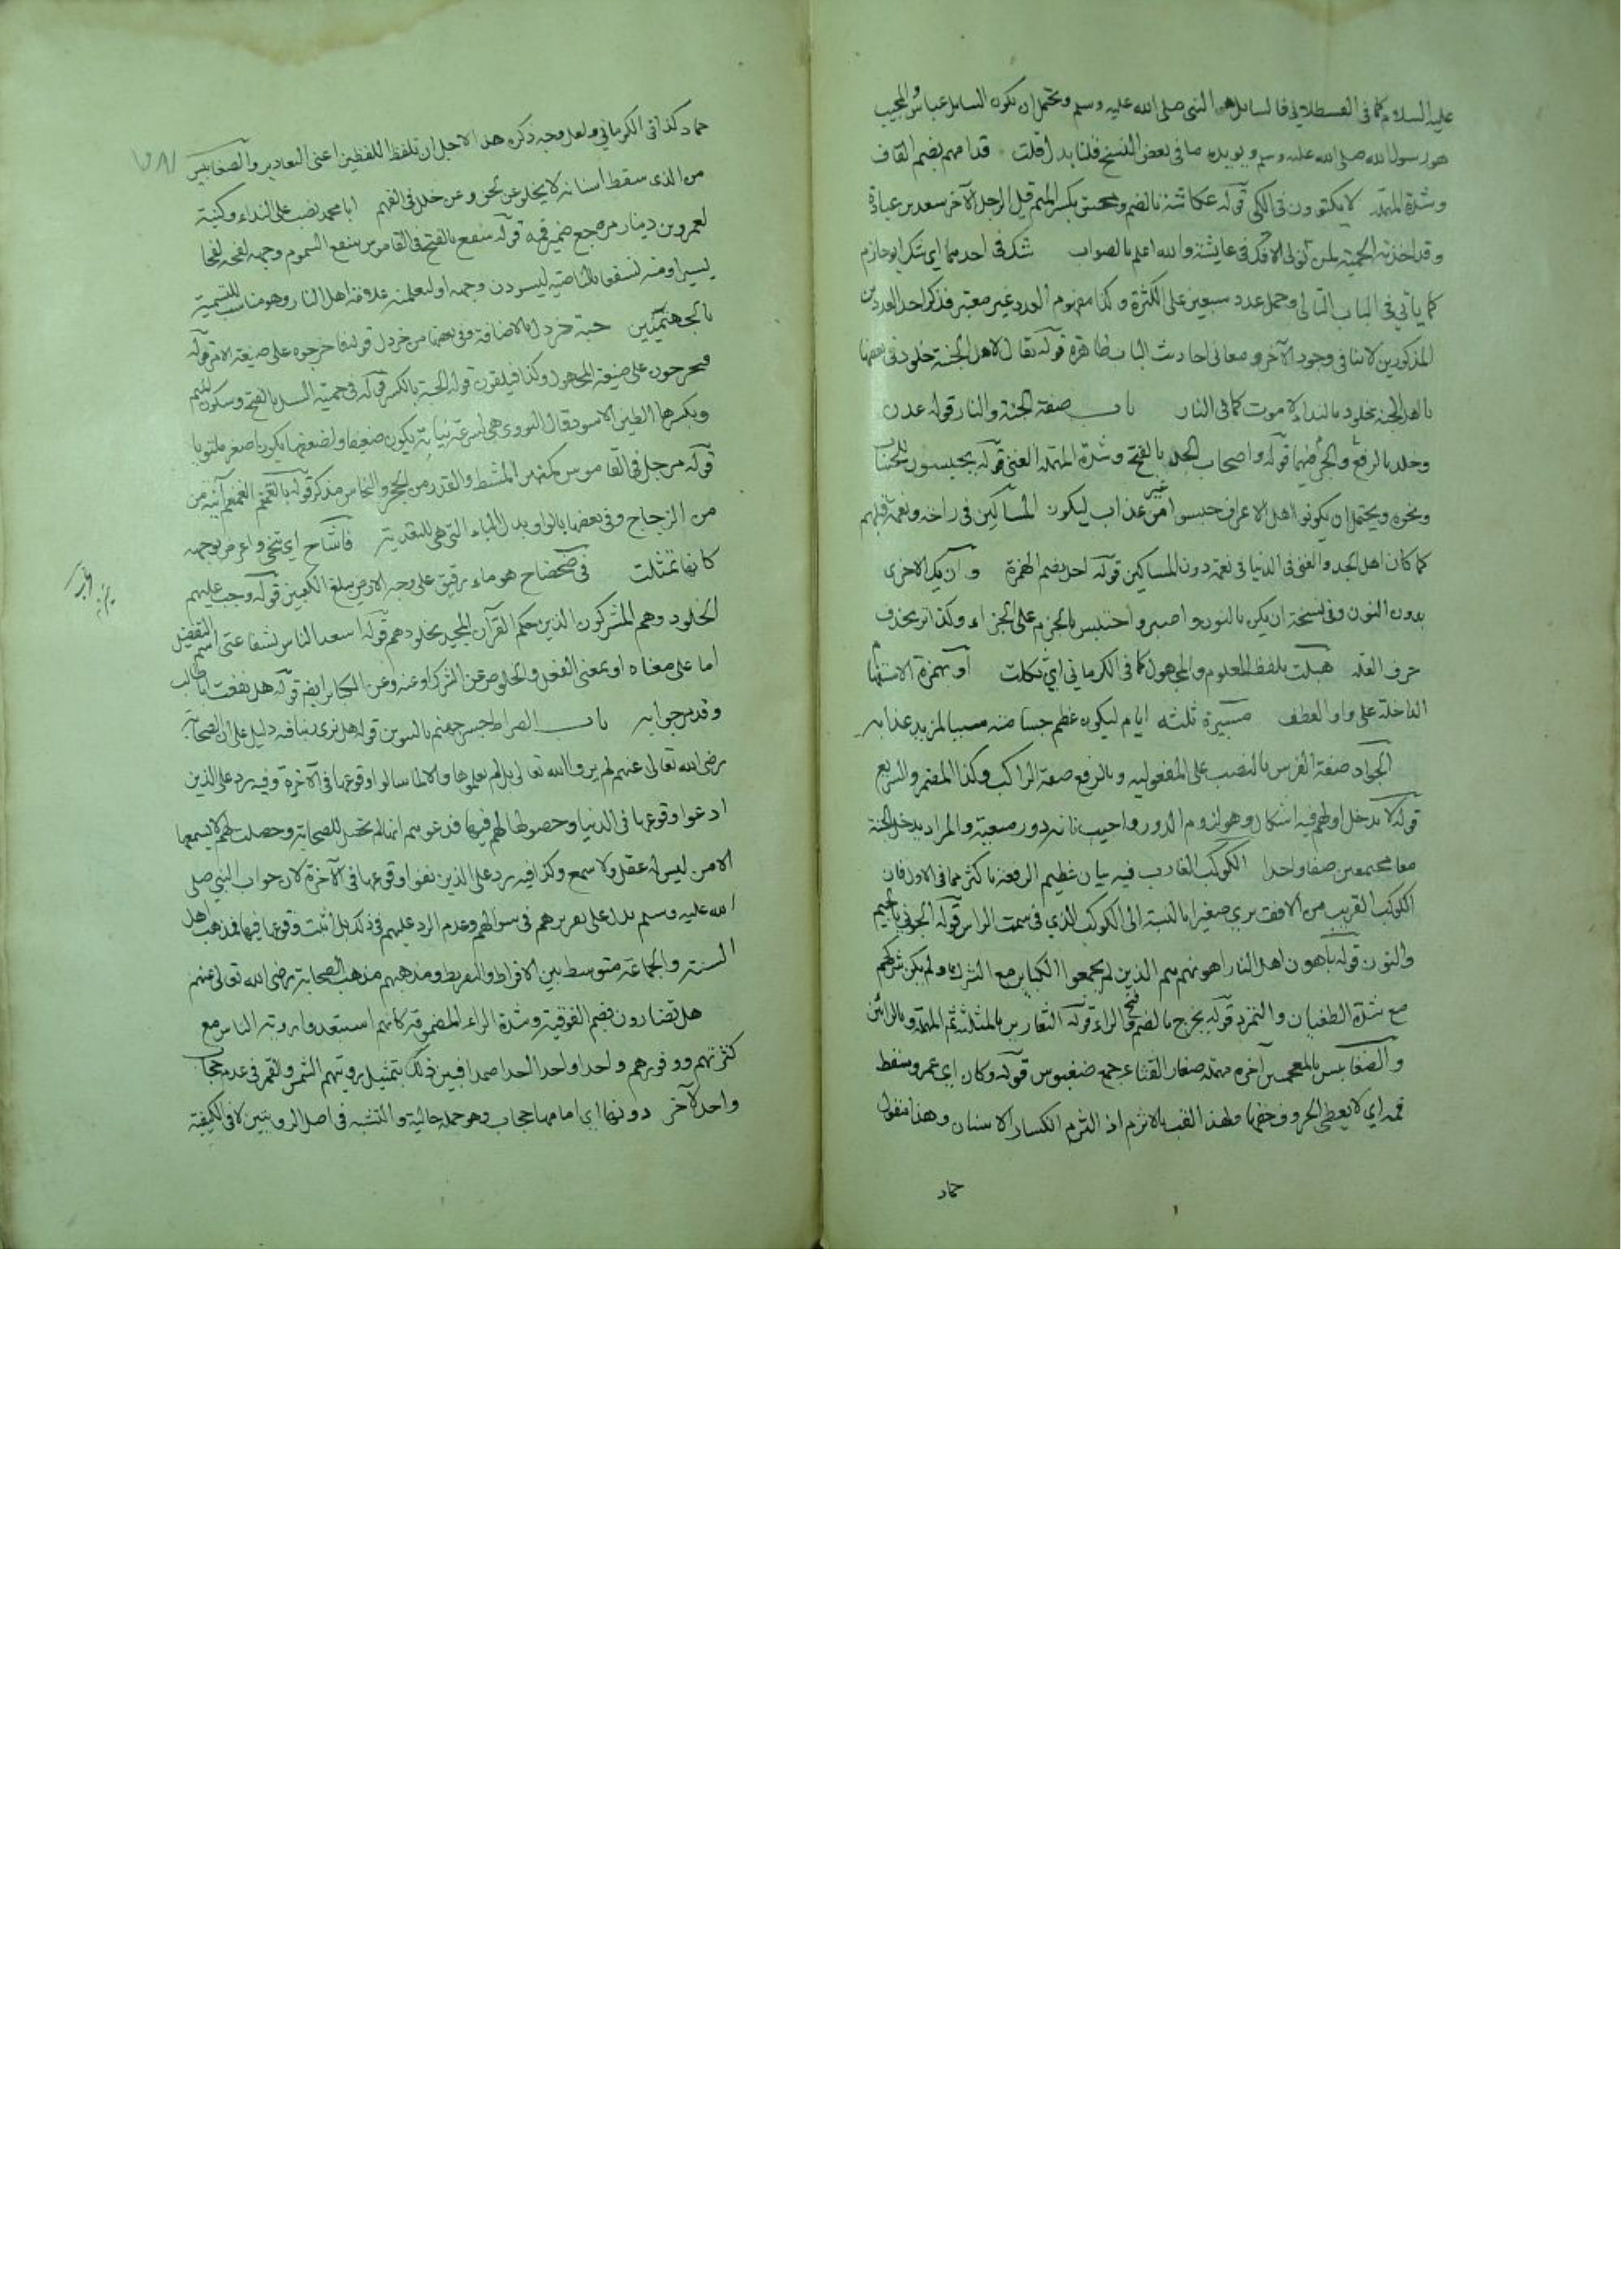 عليه السلام كما في القسطلاني فالسايل هو النبي صلى الله عليه وسلم ويحتمل ان يكون السايل عباس والمجيب
هو رسول الله صلى الله عليه وسلم ويويده ما في بعض النسخ قلنا بدل قلت قدامهم بضم القاف
وشدة المهملة لا يكتوون في الكي قوله عكاشة بالضم ومحصن بكسر الميم قيل الرجل الآخر سعد بن عبادة
وقد اخذته الحمية لمن تولى الافك في عايشة والله اعلم بالصواب شك في احدهما اي شك ابو حازم
كما ياتي في الباب التالي وحمل عدد سبعين على الكثرة وكذا مفهوم العدد غير معتبر فذكر احد العددين
المذكورين لا ينافي وجود الآخر ومعاني احاديث الباب ظاهرة قوله يقال لاهل الجنة خلود في بعضها
يا اهل الجنة خلود بالنداء لا موت كما في النار باب صفة الجنة والنار قوله عدن
وخلد بالرفع والجر فيهما قوله واصحاب الجد بالفتح وشدة المهملة الغنى قوله محبوسون للحساب
ونحوه ويحتمل ان يكونوا اهل الاعراف حبسوا من غير عذاب ليكون المساكين في راحة ونعمة قبلهم
كما كان اهل الجد والغنى في الدنيا في نعمة دون المساكين قوله احل بضم الهمزة وان يك الاخرى
بدون النون وفي نسخة ان يكن بالنون واصبر واحتسب بالجزم على الجزاء وكذا تر بحذف
حرف العلة هبلت بلفظ المعلوم والمجهول كما في الكرماني اي ثكلت او بهمزة الاستفهام
الداخلة على واو العطف مسيرة ثلثة ايام ليكون عظم جسامته سببا لمزيد عذابه
الجواد صفة الفرس بالنصب على المفعولية وبالرفع صفة الراكب وكذا المضمر والسريع
قوله لا يدخل اولهم فيه اشكال وهو لزوم الدور واجيب بانه دور معية والمراد يدخل الجنة
معا مجتمعين صفا واحدا الكوكب الغارب فيه بيان عظيم الرفعة باكثر مما في الاول فان
الكوكب القريب من الافق يرى صغيرا بالنسبة الى الكوكب الذي في سمت الراس قوله الجوني بالجيم
والنون قوله باهون اهل النار اهونهم هم الذين لم يجمعوا الكباير مع الشرك ولم يكن شركهم
مع شدة الطغيان والتمرد قوله يخرج بالضم وفتح الراء قوله الثعارير بالمثلثة ثم المهملة وبالرائين
والضغابيس بالمعجمين آخره مهملة صغار القثاء جمع ضغبوس قوله وكان اي عمرو سقط
فمه اي لا يعطي الحروف حقها ولهذا لقب بالاثرم اذ الثرم انكسار الاسنان وهذا مقول
حماد
حماد كذا في الكرماني ولعل وجه ذكره هذا لاجل ان تلفظ اللفظين اعني الثعارير والضغابيس
من الذي سقط اسنانه لا يخلو عن لحن وعن خلل في الفهم ابا محمد نصب على النداء وكنية
لعمرو بن دينار مرجع ضمير فمه قوله سفع بالفتح في القاموس سفع السموم وجهه لفحه لفحا
يسيرا ومنه لنسفعا بالناصية ليسودن وجهه او لنعلمنه علامة اهل النار وهو مناسب للتسمية
بالجهنميين حبة خردل بالاضافة وفي بعضها من خردل قوله فاخرجوه على صيغة الامر قوله
فيخرجون على صيغة المجهول وكذا فيلقون قوله الحبة بالكسر قوله في حمية السيل بالفتح وسكون الميم
وبكسرها الطين الاسود قال النووي هي لسرعة نباته يكون ضعيفا ولضعفها يكون اصفر ملتويا
قوله مرجل في القاموس كمنبر المشط والقدر من الحجر والنحاس مذكر قوله بالقمقم القمقم آنية من
من الزجاج وفي بعضها بالواو بدل الباء التي هي للتعدية فاشاح اي تنحى واعرض بوجهه
كانها تمثلت في ضحضاح هو ماء رقيق على وجه الارض يبلغ الكعبين قوله وجب عليهم
الخلود وهم المشركون الذين حكم القرآن المجيد بخلودهم قوله اسعد الناس بشفاعتي اسم التفضيل
اما على معناه او بمعنى الفعل والخلوص عن الشرك او عنه وعن الكباير ايضا قوله هل نفعت ابا طالب
وقد مر جوابه باب الصراط جسر جهنم بالتنوين قوله هل نرى ربنا فيه دليل على ان الصحابة
رضي الله تعالى عنهم لم يروا الله تعالى بل لم يعلموها والا لما سالوا وقوعها في الآخرة وفيه رد على الذين
ادعوا وقوعها في الدنيا وحصولها لهم فيها فدعوىهم انها لم تحصل للصحابة وحصلت لهم لا يسمعها
الا من ليس له عقل ولا سمع وكذا فيه رد على الذين نفوا وقوعها في الآخرة لان جواب النبي صلى
الله عليه وسلم يدل على تقريرهم في سوالهم وعدم الرد عليهم في ذلك بل اثبت وقوعها فيها فمذهب اهل
السنة والجماعة متوسط بين الافراط والتفريط ومذهبهم مذهب الصحابة رضي الله تعالى عنهم
هل تضارون بضم الفوقية وشدة الراء المضمومة كانهم استبعدوا روية الناس مع
كثرتهم ووفورهم واحدا واحدا احدا صمدا فبين ذلك بتمثيل رويتهم الشمس والقمر في عدم حجاب
واحد لآخر دونها اي امامها حجاب وهو جملة حالية والتشبه في اصل الرويتين لا في الكيفية